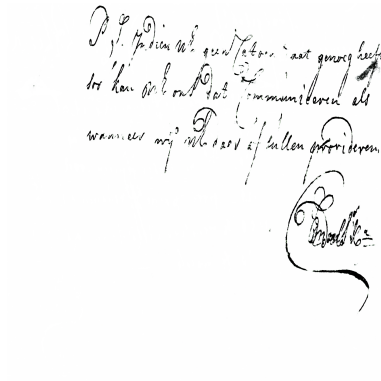 P:S: Indien UE geen Catoen aat genoeg heeft
soo kan UE ons dat Communiceren als
wanneer wij UE daar af sullen provideren